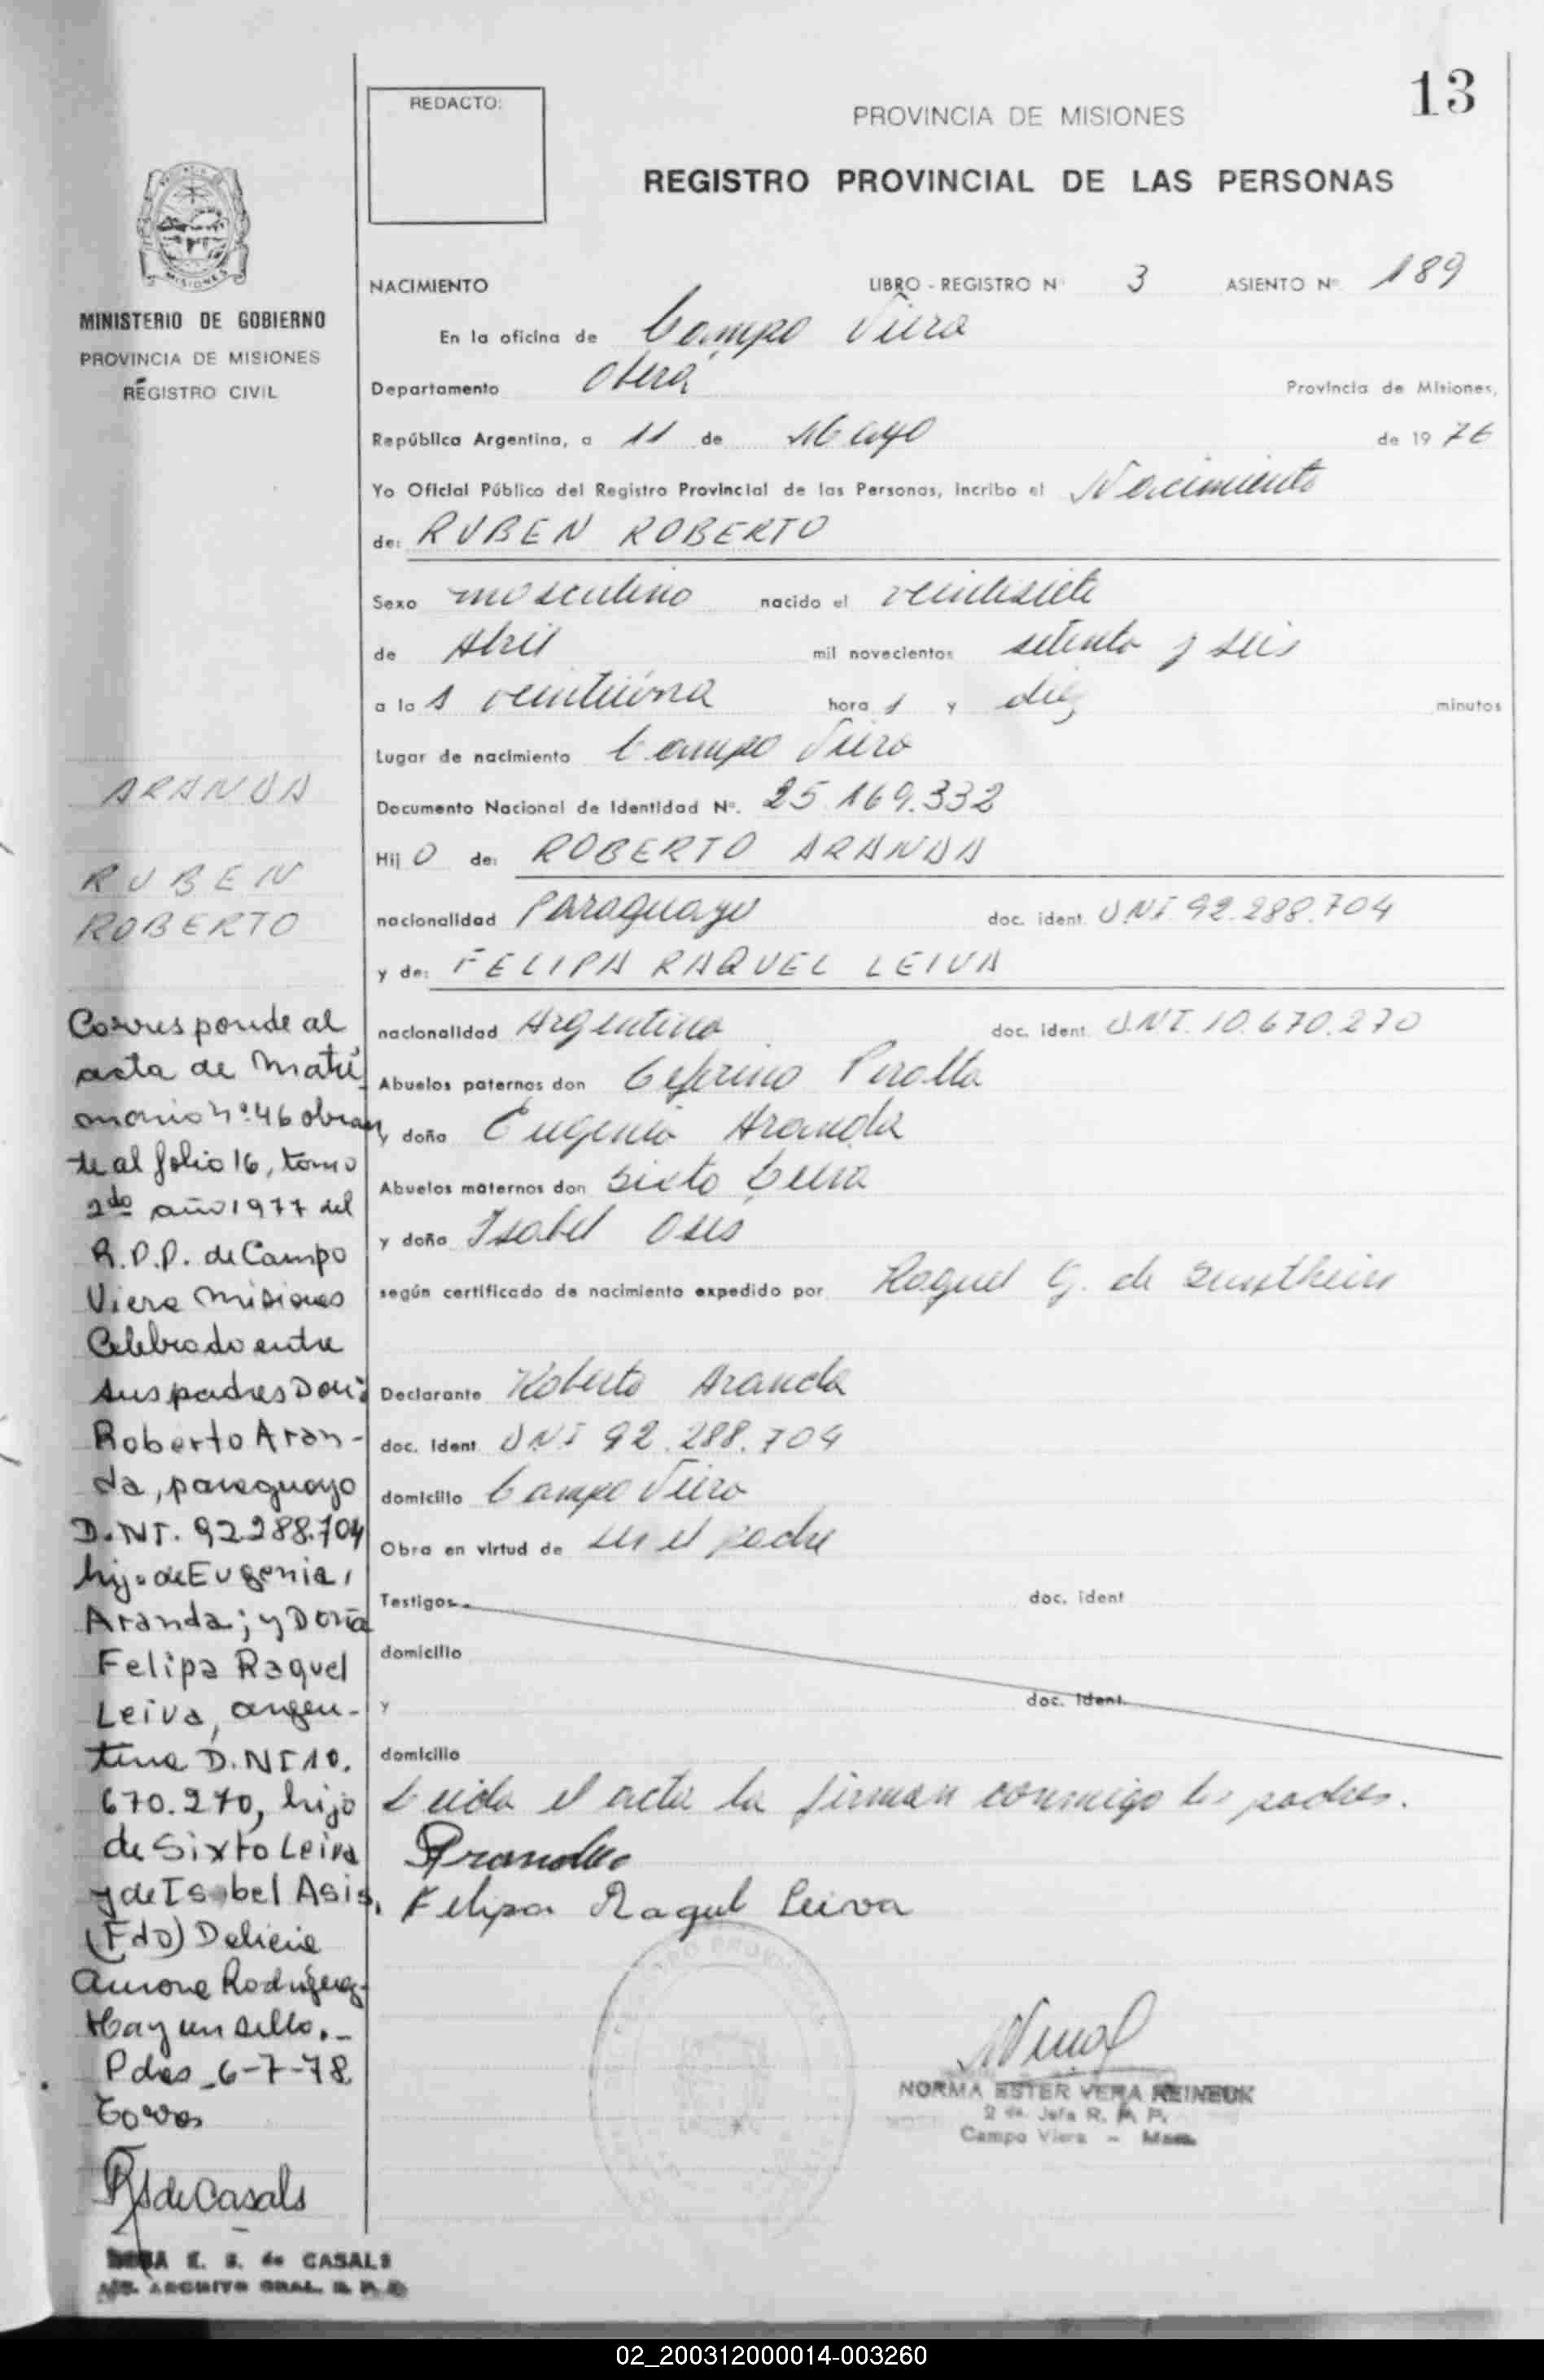 13
REDACTO:
PROVINCIA DE MISIONES
REGISTRO PROVINCIAL DE LAS PERSONAS
MISIONES
MINISTERIO DE GOBIERNO
PROVINCIA DE MISIONES
REGISTRO CIVIL
NACIMIENTO LIBRO - REGISTRO Nº 3 ASIENTO Nº 189
En la oficina de Campo Viera
Departamento Oberá Provincia de Misiones,
República Argentina, a 11 de Mayo de 1976
Yo Oficial Público del Registro Provincial de las Personas, incribo el Nacimiento
de: RUBEN ROBERTO
Sexo masculino nacido el veintisiete
de Abril mil novecientos setenta y seis
a las veintiuna horas y diez minutos
Lugar de nacimiento Campo Viera
Documento Nacional de Identidad Nº. 25.169.332
Hijo de: ROBERTO ARANDA
nacionalidad Paraguayo doc. ident. DNI. 92.288.704
y de: FELIPA RAQUEL LEIVA
nacionalidad Argentina doc. ident. D.NI. 10.670.270
Abuelos paternos don Ceferino Peralta
y doña Eugenia Aranda
Abuelos maternos don Sixto Leiva
y doña Isabel
según certificado de nacimiento expedido por Raquel G. de
Declarante Roberto Aranda
doc. ident. DNI 92.288.704
domicilio Campo Viera
Obra en virtud de ser el padre
Testigos doc. ident
domicilio
y doc. ident.
domicilio
Leida el acta la firman conmigo los padres.
Aranda
Felipa Raquel Leiva
NORMA ESTER VERA REINEUK
2 da. Jefa R. P. P.
Campo Viera - Mnes.
ARANDA
RUBEN
ROBERTO
Corresponde al
acta de Matri
monio nº 46 obran
te al folio 16, tomo
2do año 1977 del
R.P.P. de Campo
Viera Misiones
Celebrado entre
sus padres Don:
Roberto Aran-
da, paraguayo
D.NI. 92.288.704
hijo de Eugenia
Aranda; y Doña
Felipa Raquel
Leiva, argen-
tina D.NI 10.
670.270, hija
de Sixto Leiva
y de Isabel Asis,
(Fdo) Delicia
Rodríguez
Hay un sello.-
Pdas - 6-7-78
E. S. de CASALS
ARCHIVO GRAL. R. P. P.
02_200312000014-003260